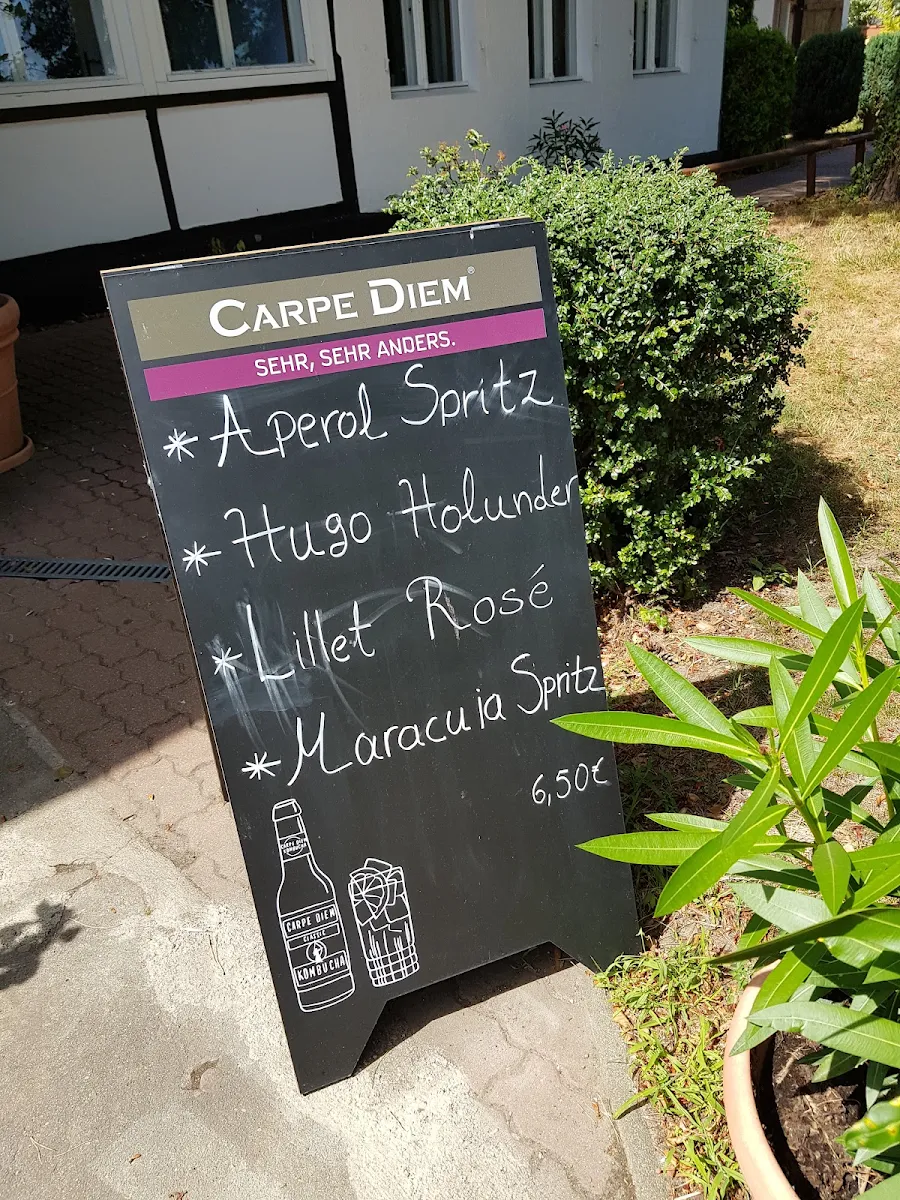 CARPE DIEM®
SEHR, SEHR ANDERS.
* Aperol Spritz
* Hugo Holunder
* Lillet Rosé
* Maracuia Spritz
6,50€
CARPE DIEM
KOMBUCHA
CARPE DIEM
CLASSIC
KOMBUCHA